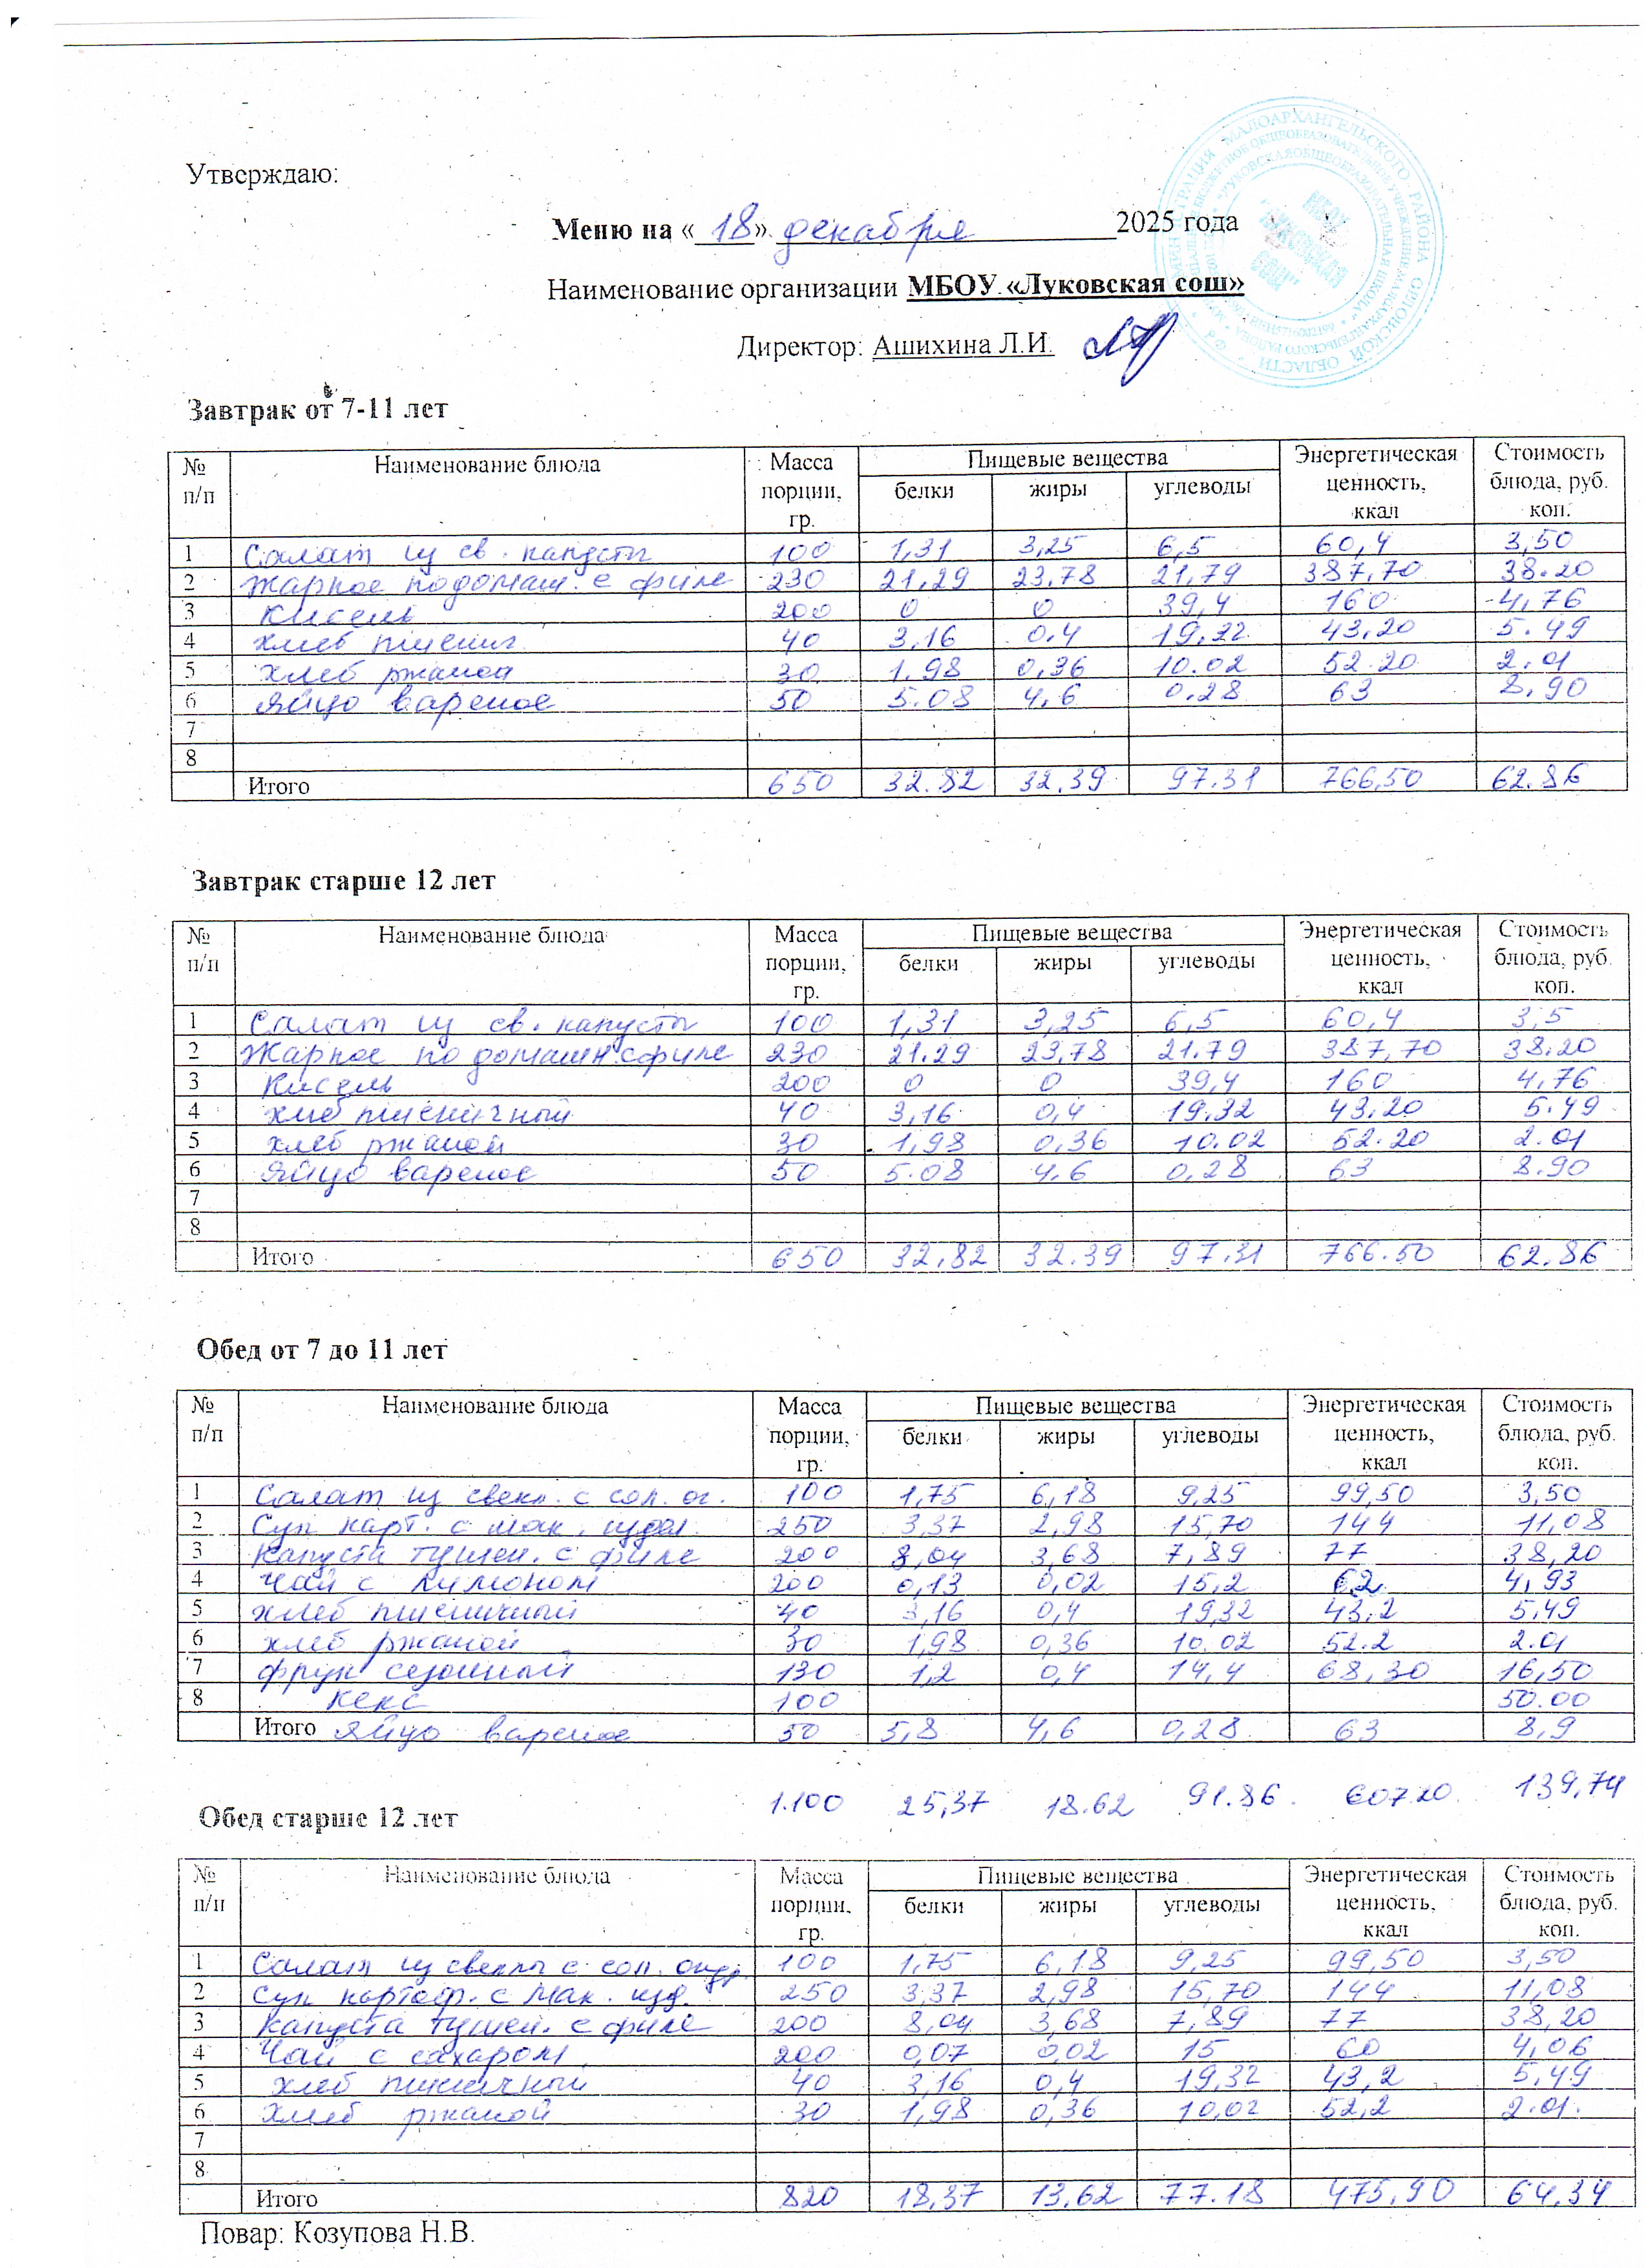 Утверждаю:
Меню на «18» декабря 2025 года
Наименование организации МБОУ «Луковская сош»
Директор: Ашихина Л.И.
Завтрак от 7-11 лет
№ п/п Наименование блюда Масса порции, гр. Пищевые вещества белки жиры углеводы Энергетическая ценность, ккал Стоимость блюда, руб. коп.
1 Салат из св. капусты 100 1,31 3,25 6,5 60,4 3,50
2 Жаркое по домаш. с филе 230 21,29 23,78 21,79 387,70 38.20
3 Кисель 200 0 0 39,4 160 4,76
4 хлеб пшенич 40 3,16 0.4 19,32 43,20 5.49
5 хлеб ржаной 30 1,98 0,36 10.02 52.20 2.01
6 Яйцо вареное 50 5.08 4,6 0.28 63 8,90
7
8
Итого 650 32.82 32,39 97.31 766,50 62.86
Завтрак старше 12 лет
№ п/п Наименование блюда Масса порции, гр. Пищевые вещества белки жиры углеводы Энергетическая ценность, ккал Стоимость блюда, руб. коп.
1 Салат из св. капусты 100 1,31 3,25 6,5 60,4 3,5
2 Жаркое по домашн. с филе 230 21.29 23,78 21.79 387,70 38.20
3 Кисель 200 0 0 39,4 160 4,76
4 хлеб пшеничный 40 3,16 0,4 19,32 43,20 5.49
5 хлеб ржаной 30 1,98 0,36 10.02 52.20 2.01
6 Яйцо вареное 50 5.08 4.6 0,28 63 8.90
7
8
Итого 650 32,82 32.39 97.31 766.50 62.86
Обед от 7 до 11 лет
№ п/п Наименование блюда Масса порции, гр. Пищевые вещества белки жиры углеводы Энергетическая ценность, ккал Стоимость блюда, руб. коп.
1 Салат из свекл. с сол. ог. 100 1,75 6,18 9,25 99,50 3,50
2 Суп карт. с мак. издел. 250 3,37 2,98 15,70 144 11,08
3 Капуста тушен. с филе 200 8,04 3,68 7,89 77 38,20
4 Чай с лимоном 200 0,13 0,02 15,2 62 4,93
5 хлеб пшеничный 40 3,16 0,4 19,32 43,2 5,49
6 хлеб ржаной 30 1,98 0,36 10.02 52.2 2.01
7 фрук сезонный 130 1,2 0,4 14,4 68,30 16,50
8 кекс 100 50.00
Итого Яйцо вареное 50 5,8 4,6 0,28 63 8,9
1.100 25,37 18.62 91.86 607.20 139,74
Обед старше 12 лет
№ п/п Наименование блюда Масса порции, гр. Пищевые вещества белки жиры углеводы Энергетическая ценность, ккал Стоимость блюда, руб. коп.
1 Салат из свеклы с сол. огур. 100 1,75 6,18 9,25 99,50 3,50
2 Суп картоф. с мак. изд. 250 3,37 2,98 15,70 144 11,08
3 Капуста тушен. с филе 200 8,04 3,68 7,89 77 38,20
4 Чай с сахаром 200 0,07 0,02 15 60 4,06
5 хлеб пшеничный 40 3,16 0,4 19,32 43,2 5,49
6 Хлеб ржаной 30 1,98 0,36 10,02 52,2 2.01.
7
8
Итого 820 18,37 13,62 77.18 475,90 64,34
Повар: Козупова Н.В.